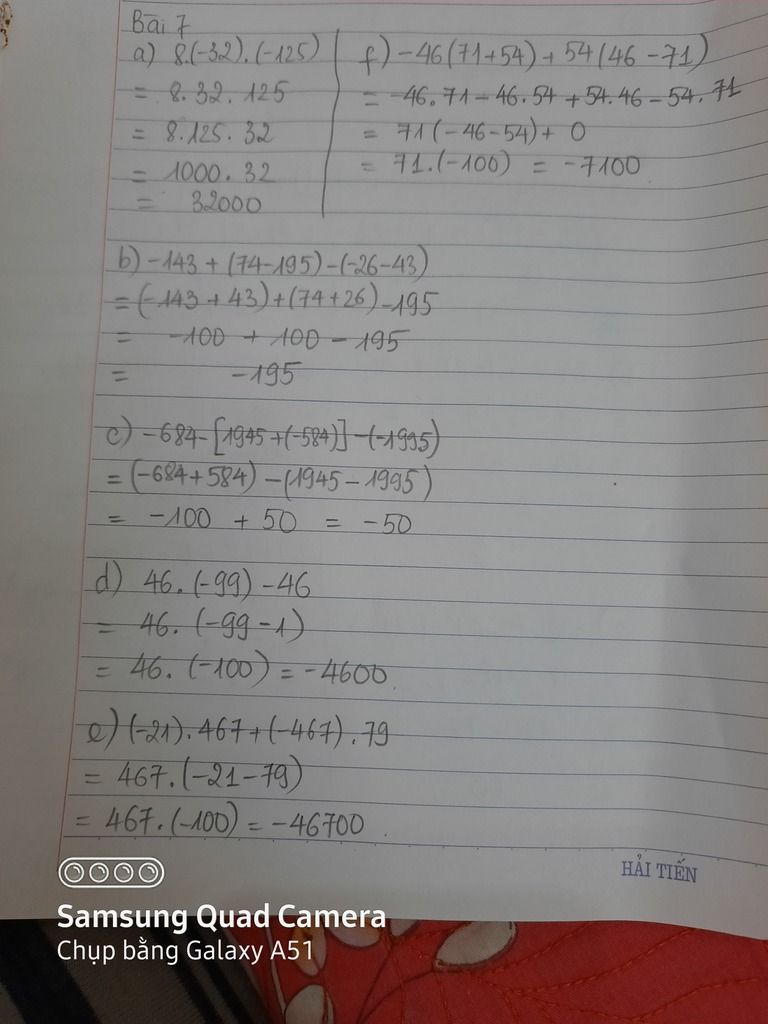 Bài 7
a) 8.(-32).(-125)
= 8.32.125
= 8.125.32
= 1000.32
= 32000
f) -46(71+54)+54(46-71)
= -46.71-46.54+54.46-54.71
= 71(-46-54)+0
= 71.(-100) = -7100
b) -143+(74-195)-(-26-43)
= (-143+43)+(74+26)-195
= -100 + 100 - 195
= -195
c) -684-[1945+(-584)]-(-1995)
= (-684+584)-(1945-1995)
= -100 + 50 = -50
d) 46.(-99)-46
= 46.(-99-1)
= 46.(-100) = -4600.
e) (-21).467+(-467).79
= 467.(-21-79)
= 467.(-100) = -46700.
HẢI TIẾN
Samsung Quad Camera
Chụp bằng Galaxy A51